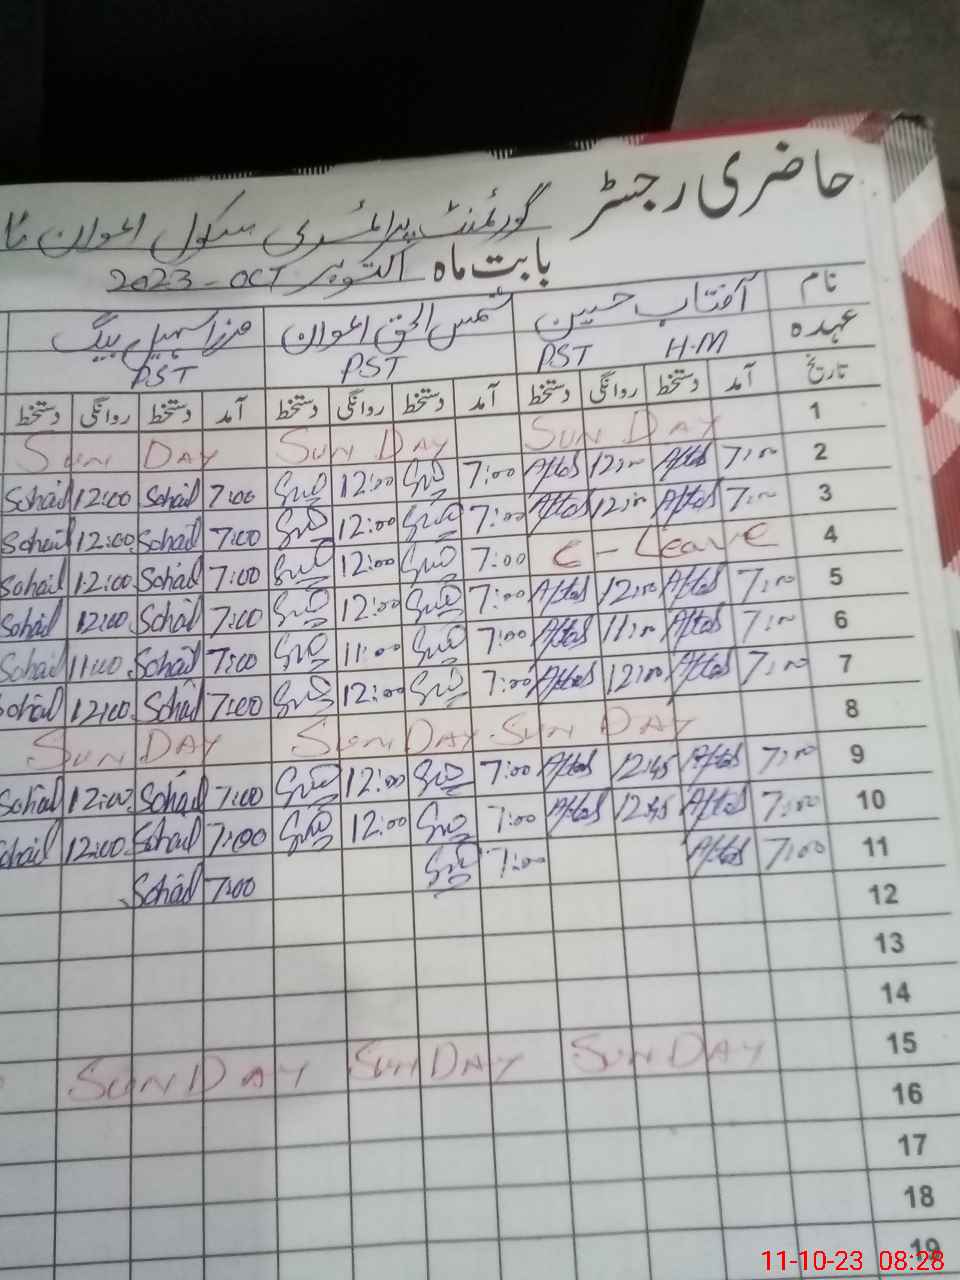 حاضری رجسٹر
گورنمنٹ پرائمری سکول اعوان
بابت ماہ اکتوبر OCT - 2023
نام آفتاب حسین شمس الحق اعوان مرزا سہیل بیگ
عہدہ H.M PST PST PST
تاریخ آمد دستخط روانگی دستخط آمد دستخط روانگی دستخط آمد دستخط روانگی دستخط
1 SUNDAY SUNDAY SUNDAY
2 7:00 Aftab 12:00 Aftab 7:00 12:00 7:00 Sohail 12:00 Sohail
3 7:00 Aftab 12:00 Aftab 7:00 12:00 7:00 Sohail 12:00 Sohail
4 C - Leave 7:00 12:00 7:00 Sohail 12:00 Sohail
5 7:00 Aftab 12:00 Aftab 7:00 12:00 7:00 Sohail 12:00 Sohail
6 7:00 Aftab 11:00 Aftab 7:00 11:00 7:00 Sohail 11:00 Sohail
7 7:00 Aftab 12:00 Aftab 7:00 12:00 7:00 Sohail 12:00 Sohail
8 SUNDAY SUNDAY SUNDAY
9 7:00 Aftab 12:45 Aftab 7:00 12:00 7:00 Sohail 12:00 Sohail
10 7:00 Aftab 12:45 Aftab 7:00 12:00 7:00 Sohail 12:00 Sohail
11 7:00 Aftab 7:00 7:00 Sohail
12
13
14
15 SUNDAY SUNDAY SUNDAY
16
17
18
19
11-10-23 08:28